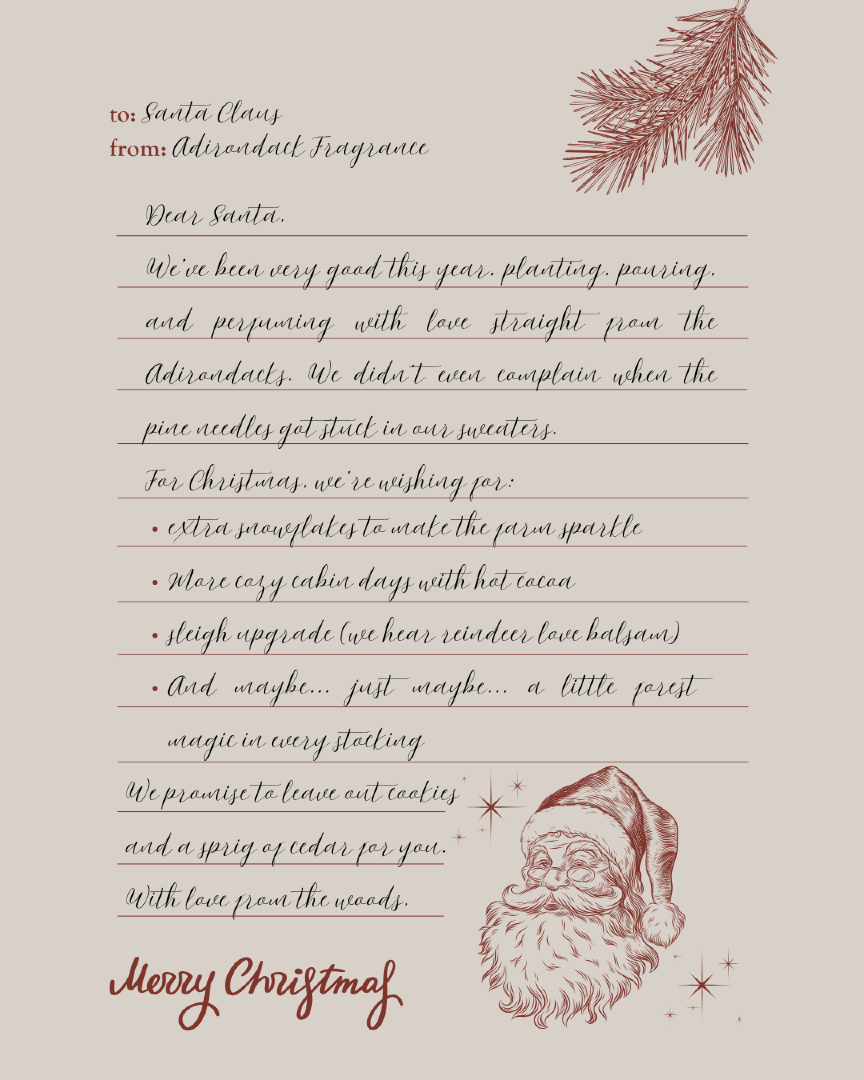 to: Santa Claus
from: Adirondack Fragrance
Dear Santa,
We've been very good this year, planting, pouring,
and perfuming with love straight from the
Adirondacks. We didn't even complain when the
pine needles got stuck in our sweaters.
For Christmas, we're wishing for:
• extra snowflakes to make the farm sparkle
• More cozy cabin days with hot cocoa
• sleigh upgrade (we hear reindeer love balsam)
• And maybe... just maybe... a little forest
magic in every stocking
We promise to leave out cookies
and a sprig of cedar for you.
With love from the woods,
Merry Christmas